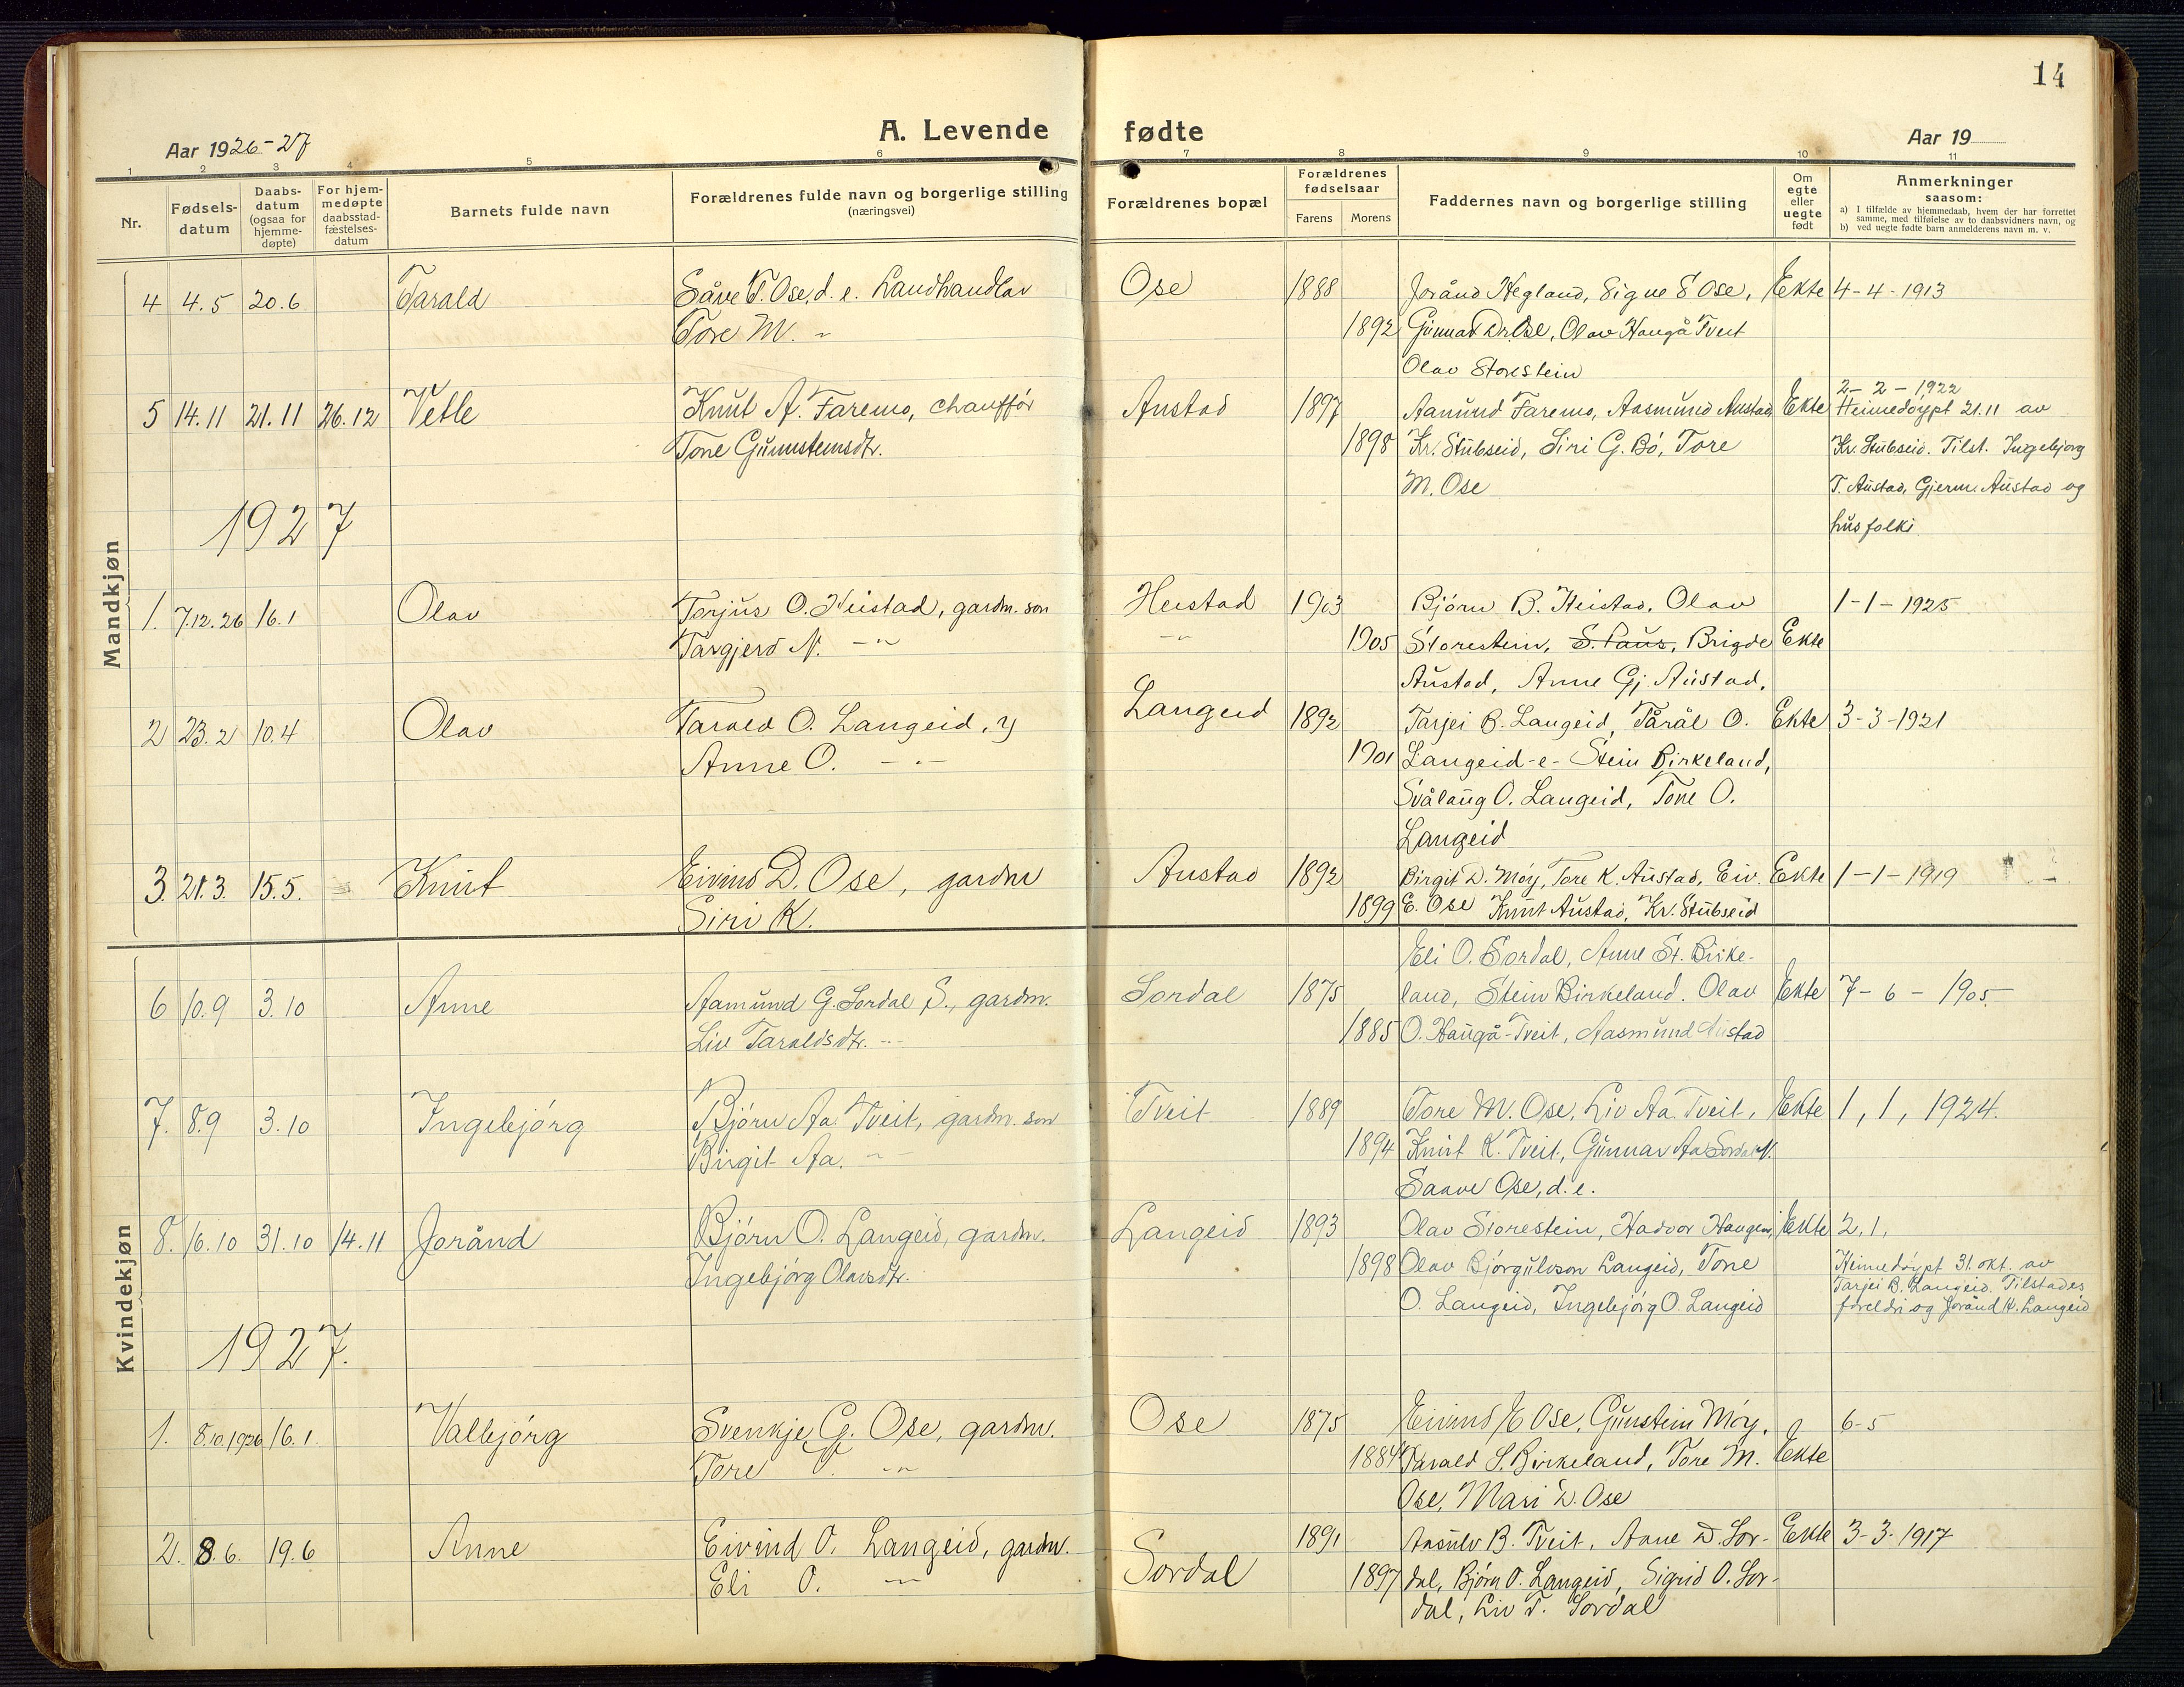 14
Aar 1926-27
A. Levende fødte
Aar 19
1 2 3 4 5 6 7 8 9 10 11
Nr.
Fødsels-
datum
Daabs-
datum
(ogsaa for
hjemme-
døpte)
For hjem-
medøpte
daabsstad-
fæstelses-
datum
Barnets fulde navn
Forældrenes fulde navn og borgerlige stilling
(næringsvei)
Forældrenes bopæl
Forældrenes
fødselsaar
Farens Morens
Faddernes navn og borgerlige stilling
Om
egte
eller
uegte
født
Anmerkninger
saasom:
a) I tilfælde av hjemmedaab, hvem der har forrettet
samme, med tilføielse av to daabsvidners navn, og
b) ved uegte fødte barn anmelderens navn m. v.
Mandkjøn
4 4.5 20.6 Tarald Såve T. Ose, d. e. Landhandlar Ose 1888 Joränd Hegland, Signe S Ose, Ekte 4-4-1913
Tore M. -"- 1892 Gunnar Dr. Ose, Olav Haugå Tveit
Olav Storestein
5 14.11 21.11 26.12 Vetle Knut A. Faremo, chauffør Austad 1897 Aamund Faremo, Aasmund Austad, Ekte 2-2-1922
Heimedøypt 21.11 av
Tone Gunnsteinsdtr. 1898 Kr. Stubseid, Siri G. Bø, Tore Kr. Stubseid. Tilst. Ingebjørg
M. Ose T. Austad, Gjerm. Austad og
husfolki
1927
1. 7.12.26 16.1 Olav Torjus O. Heistad, gardm. son Heistad 1903 Bjørn B. Heistad, Olav 1-1-1925
Targjerd N. -"- -"- 1905 Storestein, S. Paus, Brigde Ekte
Austad, Anne Gj. Austad,
2 23.2 10.4 Olav Tarald O. Langeid, y Langeid 1892 Tarjei B. Langeid, Tårål O. Ekte 3-3-1921
Anne O. -"- 1901 Langeid -e- Stein Birkeland,
Svålaug O. Langeid, Tone O.
Langeid
3. 21.3. 15.5. Knut Eivind D. Ose, gardm Austad 1892 Birgit D. Møy, Tore K. Austad, Eiv. Ekte 1-1-1919
Siri K. 1899 E. Ose Knut Austad, Kr. Stubseid
Kvindekjøn
Eli O. Sordal, Anne St. Birke-
6 10.9 3.10 Anne Aamund G. Sordal S., gardm. Sordal 1875 land, Stein Birkeland. Olav Ekte 7-6-1905.
Liv Taraldsdtr. -"- 1885 O. Haugå-Tveit, Aasmund Austad
7. 8.9 3.10 Ingebjørg Bjørn Aa. Tveit, gardm. son Tveit 1889 Tore M. Ose, Liv Aa. Tveit, Ekte 1, 1, 1924.
Birgit Aa. -"- 1894 Knut K. Tveit, Gunnar Aa Sordal N.
Saave Ose, d. e.
8. 16.10 31.10 14.11 Joränd Bjørn O. Langeid, gardm. Langeid 1893 Olav Storestein, Hadvor Haugen, Ekte 2, 1,
Ingebjørg Olavsdtr. 1898 Olav Bjørgulvson Langeid, Tone Heimedøypt 31. okt. av
Tarjei B. Langeid. Tilstades
O. Langeid, Ingebjørg O. Langeid foreldri og Joränd K. Langeid
1927.
1. 8.10.1926 16.1. Valbjørg Svenkje G. Ose, gardm. Ose 1875 Eivind E Ose, Gunstein Møy, 6-5
Tore T. -"- 1884 Tarald S. Birkeland, Tore M. Ekte
Ose, Mari D. Ose
2. 8.6. 19.6 Anne Eivind O. Langeid, gardm. Sordal 1891 Aasulv B. Tveit, Anne D. Sor- Ekte 3-3-1917
Eli O. -"- 1897 dal, Bjørn O. Langeid, Sigrid O. Sor-
dal, Liv T. Sordal